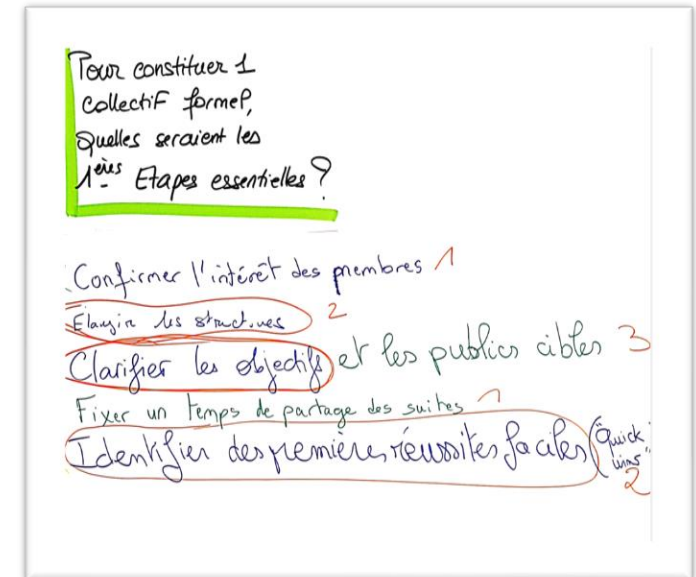 Pour constituer 1
collectif formel,
Quelles seraient les
1ères Etapes essentielles ?
Confirmer l'intérêt des membres 1
Elargir les structures 2
Clarifier les objectifs et les publics cibles 3
Fixer un temps de partage des suites 1
Identifier des premières réussites faciles ("Quick
wins"
2